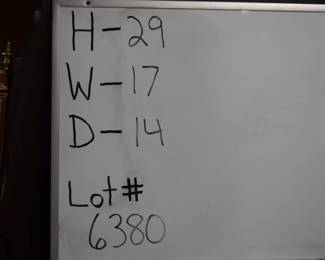 H-29
W-17
D-14
Lot#
6380